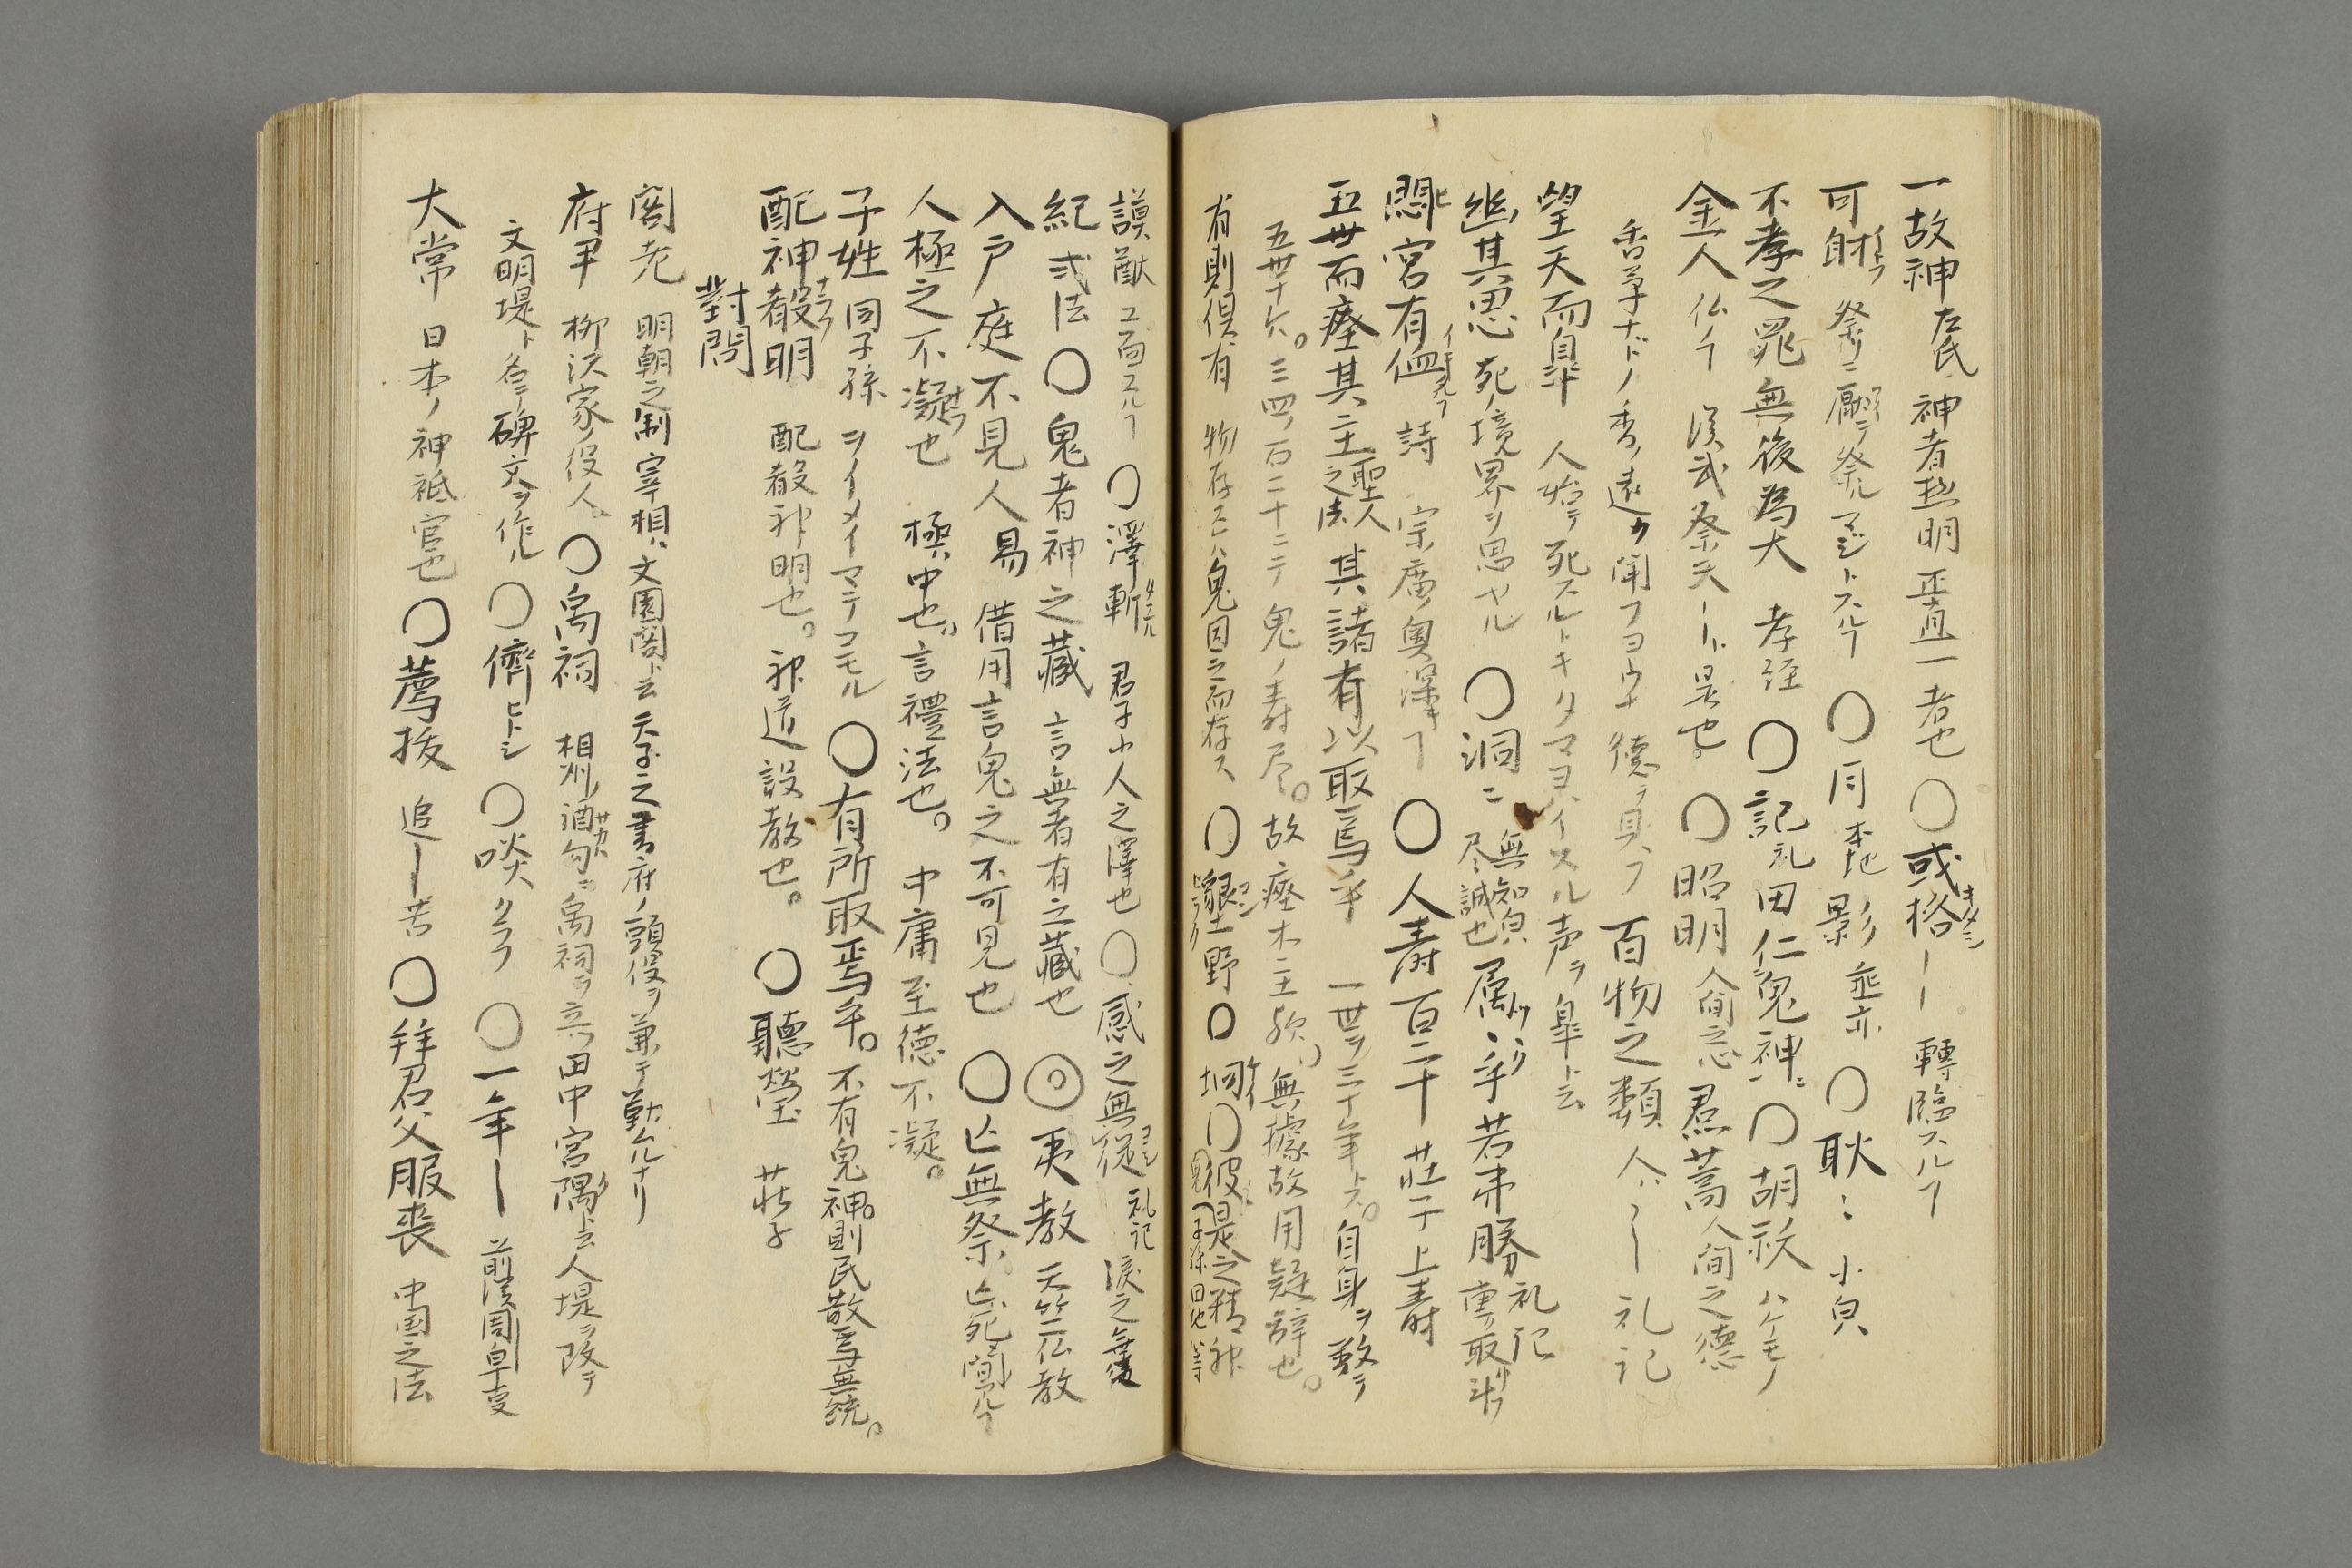 一故神 左氏 神者聡明正直一者也 〇或格 キタシ ーー 轉臨スルフ
可射 イトフ 祭リニ厭テ祭ルマジトスルフ 〇月 本地 影 〇耿〻 小皃
不孝之罪無後為大 孝経 〇記 礼 田仁鬼神〻 〇胡祆 ハケモノ
金人 仏ノフ 漢武祭天ーート是也 〇昭明 焄蒿 人間之徳
香草ナドノ香ノ遠ク聞フヨウナ徳ヲ具フ 百物之類 人ハー 礼記
望天而皐 人始テ死スルトキタマヨバイスル声ヲ皐ト云
幽其思 死ノ境界ヲ思ヤル 〇洞〻 無知皃 尽誠也 属〻乎若弗勝 礼記
閟宮有侐 詩 宗廣ノ奥深キフ 〇人壽百二十 荘子上壽
五世而瘞其主 聖人之法 其諸有以取焉乎 一世ヲ三十年トス。自身ヲ数テ
五世十ケ。三四ノ百二十ニテ鬼ノ壽尽。故瘞木主歟、無據故用疑辞也。
有則俱有 物存スレハ鬼因之而存ス 〇墾野 〇坰 〇彼是之精神
謨猷 〇澤斬 君子小人之澤也 〇感之無従 礼記 涙之無従
紀 式法 〇鬼者神之藏 言無者有之藏也 ◎夷教 天竺仏教
入戸庭不見人 易 借用言鬼之不可見也 〇亡無祭
人極之不凝也 極中也。言禮法也。 中庸至徳不凝。
子姓 同子孫 ヲイメイマテコモル 〇有所取焉乎。不有鬼神則民散焉無統。
配神殽明 配殽神明也。神道設教也。 〇聽瑩 荘子
對問
閣老 明朝之制宰相ハ文園閣ト云天子之書府ノ頭役ヲ兼テ勤ムルナリ
府尹 柳沢家ノ役人。 〇禹祠 相州ノ酒匂ニ禹祠ヲ立 田中宮隅ト云人堤ヲ改テ
文明堤ト名ニテ碑文ヲ作ル 〇儕 ヒトシ 〇啖 クラフ 〇一年ー 前漢
大常 日本ノ神祇官也 〇薦抜 追ー苦 〇拝君父服喪 中国之法